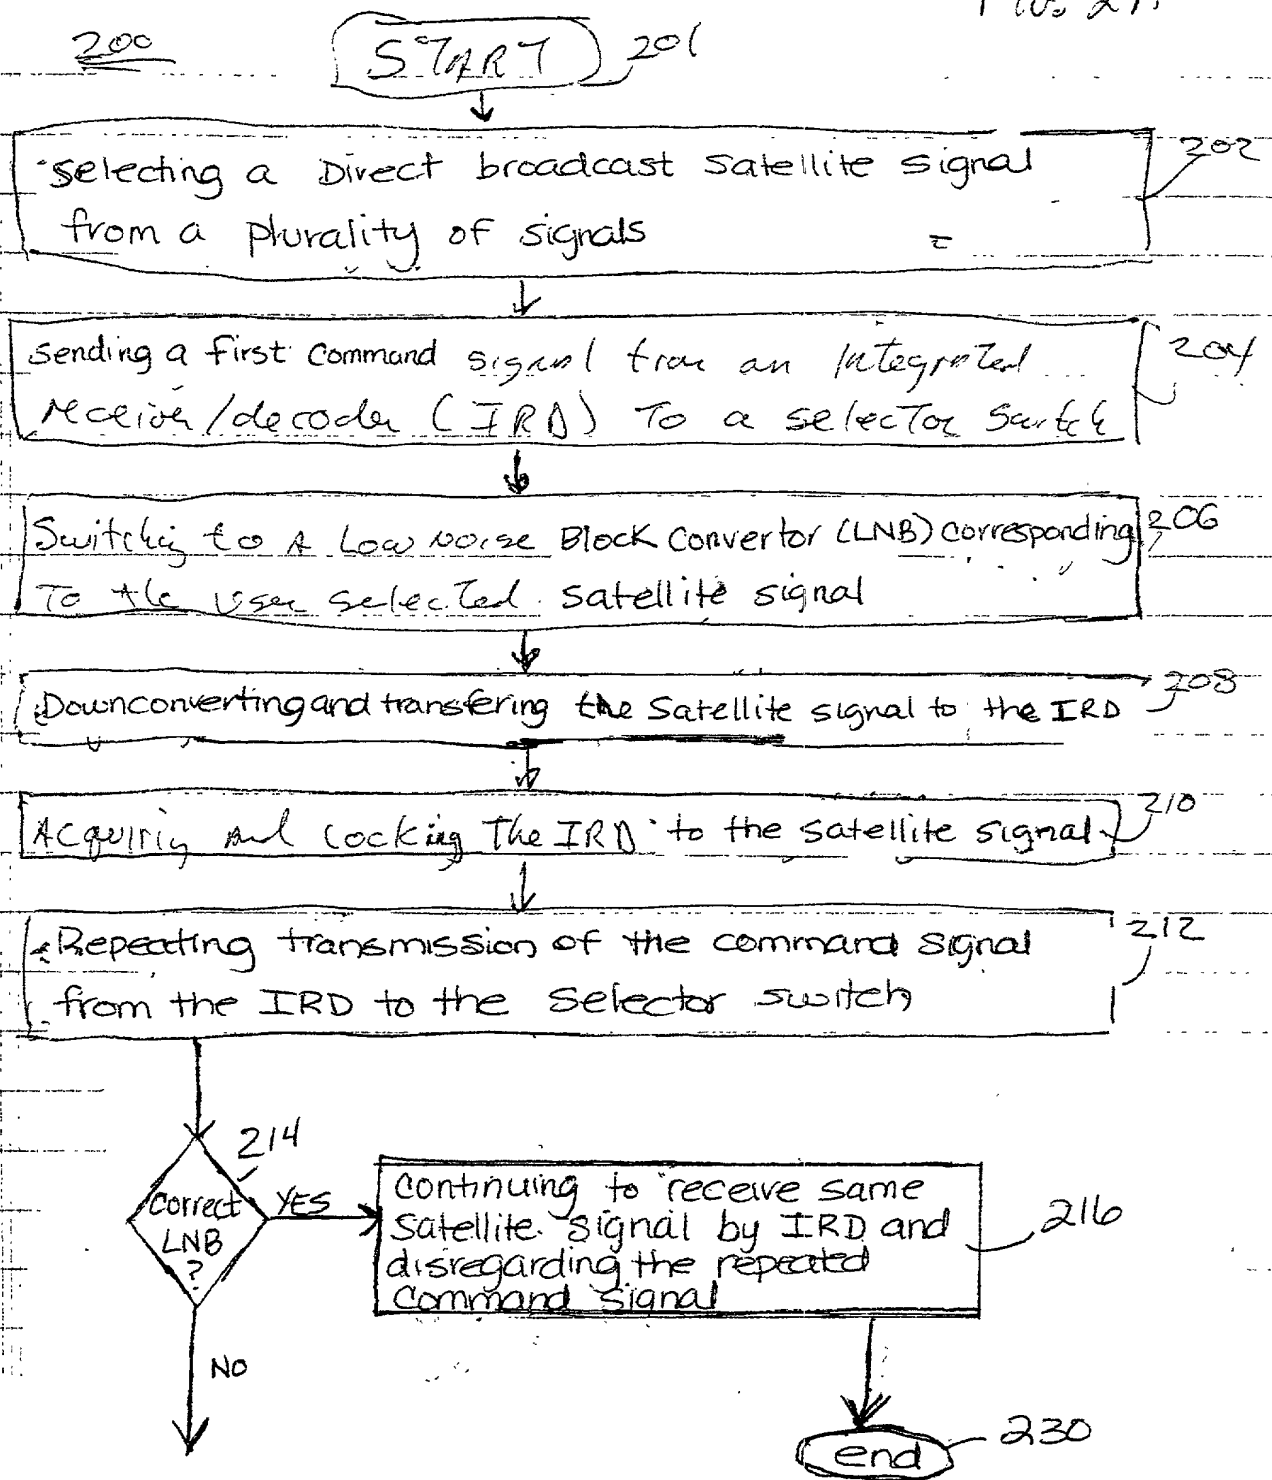 200
START
201
selecting a Direct broadcast satellite signal
202
from a plurality of signals
Sending a first command signal from an Integrated
204
receiver/decoder (IRD) To a selector switch
Switching to A Low noise Block Convertor (LNB) corresponding
206
To the user selected satellite signal
Downconverting and transfering the Satellite signal to the IRD
208
Acquiring and locking The IRD to the satellite signal
210
Repeating transmission of the command signal
212
from the IRD to the Selector switch
214
Correct
LNB
?
YES
continuing to receive same
Satellite signal by IRD and
disregarding the repeated
Command signal
216
NO
end
230